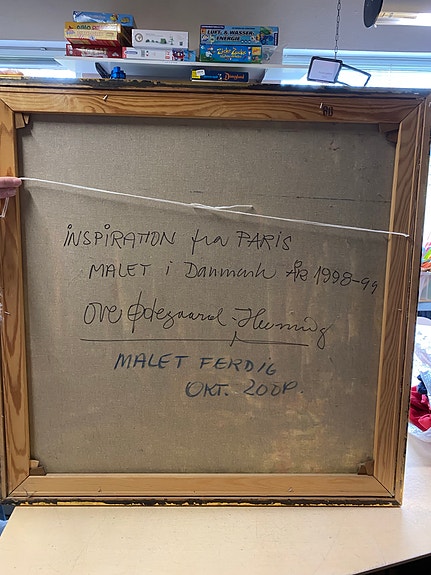 LUFT- & WASSER-
ENERGIE
INSPIRATION fra PARIS
MALET i Danmark ÅR 1998-99
Ove Ødegaard-Henning
MALET FERDIG
OKT.